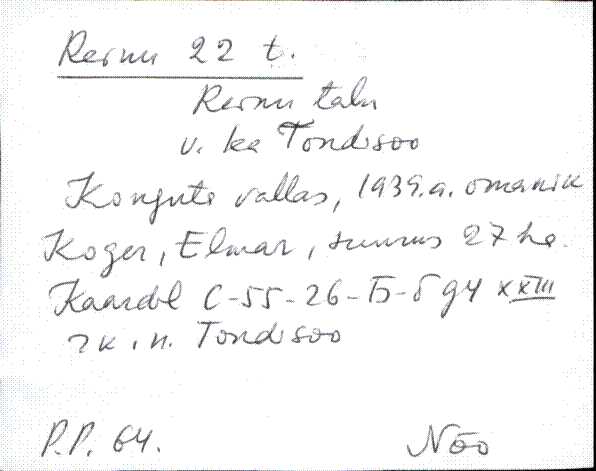 Rernu 22 t.
Rernu talu
v. ka Tondisoo
Konguta vallas, 1939.a. omanik
Koger, Elmar, suurus 27 ha.
Kaardil C-55-26-Б-б 94 XXIII
rk. n. Tondisoo
P.P. 64. Nõo